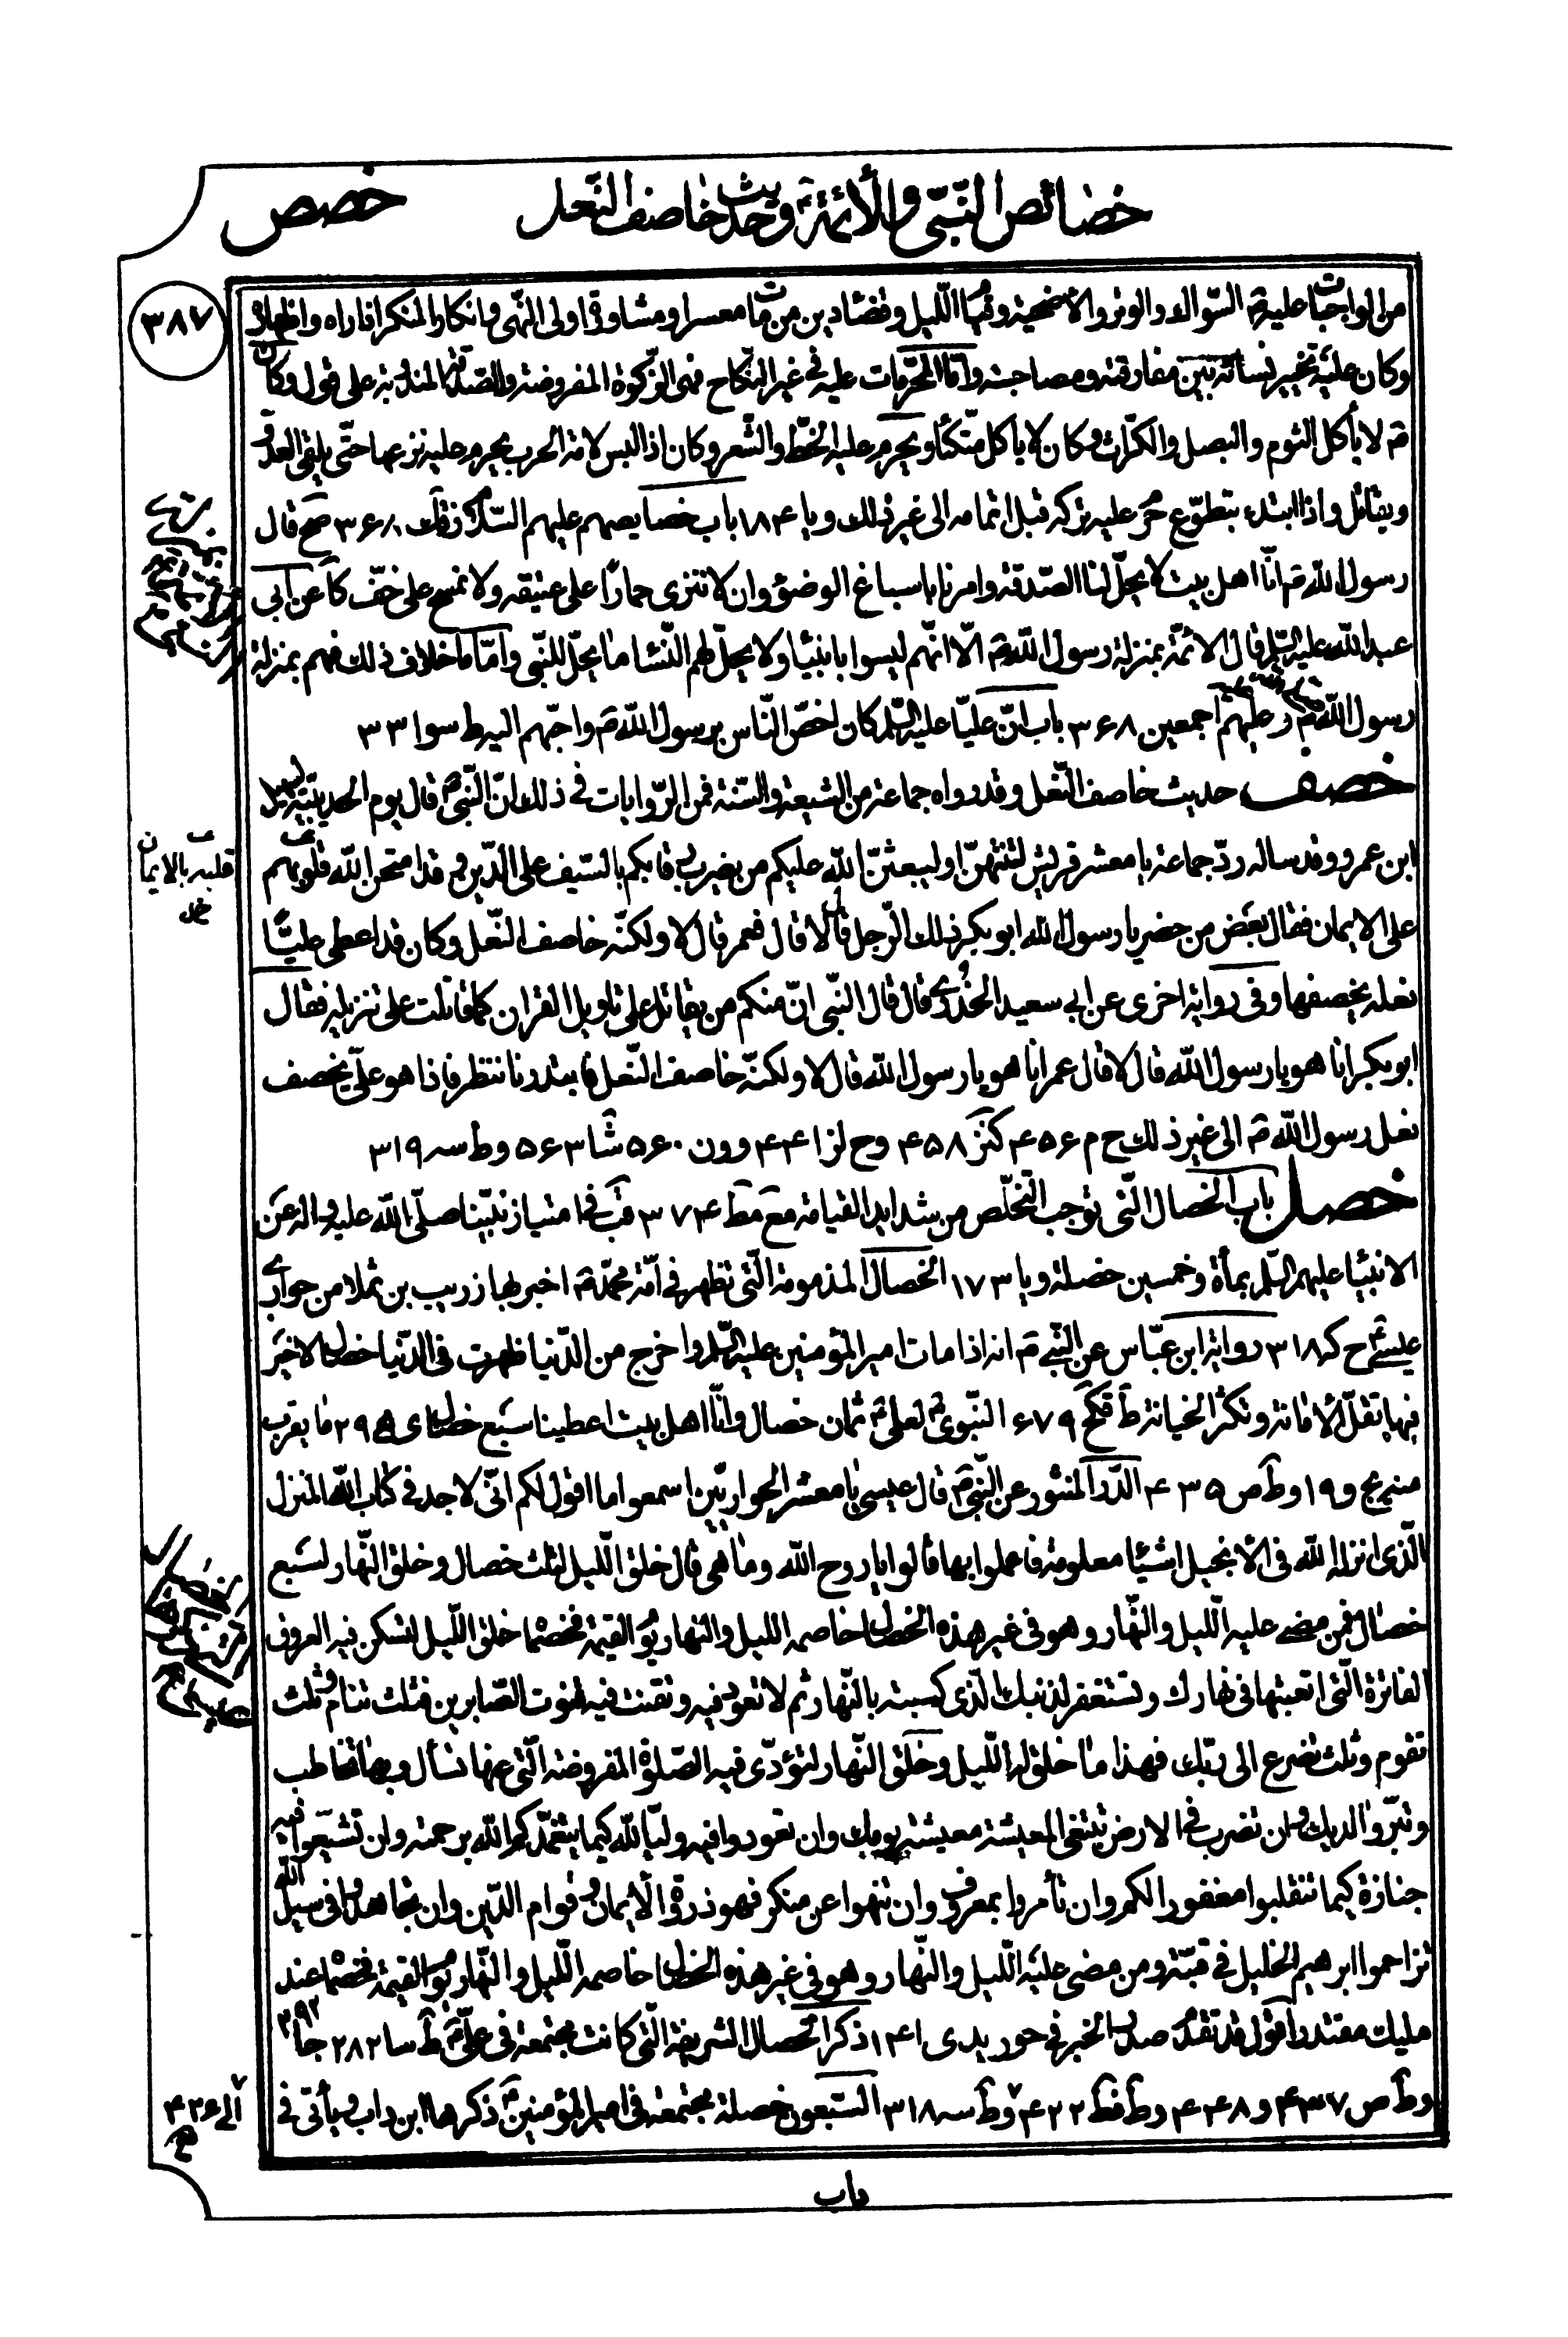 خصائص النّبيّ والأئمّة ع وحديث خاصف النّعل
خصص
٣٨٧
من الواجبات عليه ص السّواك والوتر والأضحية وقيام اللّيل وقضاء دين من مات معسرا ومشاورة اولى النّهى وانكار المنكر اذا راه واظهاره
وكان عليه تخيير نسائه بين مفارقته ومصاحبته وامّا المحرّمات عليه فى غير النّكاح فهى الزّكوة المفروضة والصّدقة المندوبة على قول وكان
ص لا يأكل الثوم والبصل والكرّاث وكان لا يأكل متّكئا ويحرم عليه الخطّ والشّعر وكان اذا لبس لامة الحرب يحرم عليه نزعها حتّى يلقى العدوّ
ويقاتل واذا ابتدء بتطوّع حرم عليه تركه قبل اتمامه الى غير ذلك ويا ١٨٤ باب خصايصهم عليهم السّلام ز فك ٣٦٨ صح قال
رسول الله ص انّا اهل بيت لا يحلّ لنا الصّدقة وامرنا باسباغ الوضوء وان لا ننزى حمارًا على عتيقه ولا نمسح على خفّ كا عن ابى
عبد الله عليه السّلم قال الائمّة بمنزلة رسول الله ص الّا انّهم ليسوا بانبياء ولا يحلّ لهم النّساء ما يحلّ للنّبى وامّا ما خلاف ذلك فهم بمنزلة
رسول الله ص وعليهم اجمعين ٣٦٨ باب انّ عليّا عليه السّلم كان اخصّ النّاس برسول الله ص واحبّهم اليه ط سوا ٣٣
خصف حديث خاصف النّعل وقد رواه جماعة من الشيعة والسّنة فمن الرّوايات فى ذلك انّ النّبى ص قال يوم الحديبيّة لسهيل
ابن عمرو وقد ساله ردّ جماعة يا معشر قريش لتنتهنّ او ليبعثنّ الله عليكم من يضرب رقابكم بالسّيف على الدّين قد امتحن الله قلوبهم
قلبه بالايمان
خ ل
على الايمان فقال بعض من حضر يا رسول الله ابو بكر ذلك الرّجل قال لا قال فعمر قال لا ولكنّه خاصف النّعل وكان قد اعطى عليّا
نعله يخصفها وفى رواية اخرى عن ابي سعيد الخُدرى قال قال النّبى انّ منكم من يقاتل على تاويل القران كما قاتلت على تنزيله فقال
ابو بكر انا هو يا رسول الله قال لا قال عمر انا هو يا رسول الله قال لا ولكنّه خاصف النّعل فابتدرنا ننظر فاذا هو علىّ يخصف
نعل رسول الله ص الى غير ذلك ح م ٤٥٦ كنز ٤٥٨ وح لز ٤٤١ وون ٥٦٠ شا ٥٦٣ وط سه ٣١٩
خصل باب الخصال الّتى توجب التّخلّص من شدايد القيامة مع مط ٣٧٤ قب فى امتياز نبيّنا صلّى الله عليه واله عن
الانبياء عليهم السّلم بمأة وخمسين خصلة ويا ١٧٣ الخصال المذمومة الّتى تظهر فى امّة محمّد ص اخبر بها زريب بن ثملا من حوارى
عيسى ع ح كه ٣١٨ رواية ابن عبّاس عن النّبى ص انه اذا مات امير المؤمنين عليه السّلم واخرج من الدّنيا ظهرت فى الدّنيا خصال لا خير
فيها تقلّ الامانة وتكثر الخيانة ط فكج ٦٧٩ النّبوى ص لعلى ع ثمان خصال وانّا اهل بيت اعطينا سبع خصال ى ه ٢٩٥ ما يقرب
منه ع ج و ١٩ وط ص ٤٣٥ الدّر المنثور عن النّبى ص قال عيسى يا معشر الحواريّين اسمعوا ما اقول لكم انّى لاجد فى كتاب الله المنزل
الّذى انزله الله فى الانجيل اشيئا معلومة فاعملوا بها قالوا يا روح الله وما هى قال خلق اللّيل لثلث خصال وخلق النّهار لسبع
خصال فمن مضى عليه اللّيل والنّهار وهو فى غير هذه الخصال خاصمه الليل والنهار يوم القيمة فخصماه خلق اللّيل لتسكن فيه العروق
الفاترة الّتى اتعبتها فى نهارك وتستغفر لذنبك الّذى كسبته بالنّهار ثم لا تعود فيه وتقنت فيه قنوت الصّابرين فثلث تنام وثلث
تقوم وثلث تضرع الى ربّك فهذا ما خلق له اللّيل وخلق النّهار لتؤدّى فيه الصّلوة المفروضة الّتى عنها تسأل وبها تخاطب
وتبرّ والديك وان تضرب فى الارض تبتغى المعيشة معيشة يومك وان تعودوا فيه وليّا لله كيما يتغمّدكم الله برحمته وان تشيّعوا فيه
جنازة كيما تنقلبوا مغفورا لكم وان تأمروا بمعروف وان تنهوا عن منكر فهو ذروة الايمان وقوام الدّين وان تجاهدوا فى سبيل الله
تزاحموا ابرهيم الخليل فى قبّته ومن مضى عليه اللّيل والنّهار وهو فى غير هذه الخصال خاصمه اللّيل والنّهار يوم القيمة فخصماه عند
مليك مقتدر اقول قد تقدّم صدر الخبر فى حور يد ى ١٤١ ذكر الخصال الشريفة الّتى كانت مجتمعة فى علىّ ع ط سا ٢٨٢ جا ٣٩٢
وط ص ٤٣٧ و ٤٤٨ وط فظ ٤٢٢ وط سه ٣١٨ السّبعون خصلة مجتمعة فى امير المؤمنين ع ذكرها ابن داب ويأتى فى
الى ٤٢٦
داب